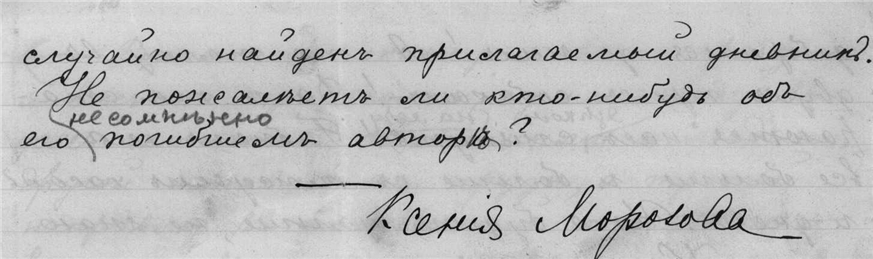 случайно найденъ прилагаемый дневникъ.
Не пожалѣетъ ли кто-нибудь объ
несомнѣнно
его погибшемъ авторѣ?
Ксенія Морозова